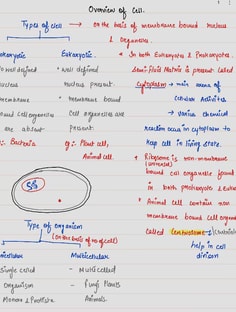 Overview of Cell.
Types of Cell → On the basis of membrane bound nucleus & Organelles.
Prokaryotic
Eukaryotic
well defined
nucleus
membrane
bound cell organelles
are absent
Bacteria
• well defined
nucleus present.
• Membrane bound
Cell organelles are
present.
eg:- Plant cell,
Animal cell
* In both Eukaryotes & Prokaryotes
Semi-fluid Matrix is present called
Cytoplasm → main area of
Cellular Activities
→ various chemical
reaction occur in cytoplasm to
keep cell in living state.
* Ribosome is non-membrane
bound cell organelle found
in both prokaryote &
* Animal cell contains non-
membrane bound cell organelle
called Centrosome
help in cell
division
Types of organism
(On the basis of no of cell)
Unicellular
Multicellular
Single celled
organism
Monera & Protista
- Multi celled
- Fungi, Plants
Animals.